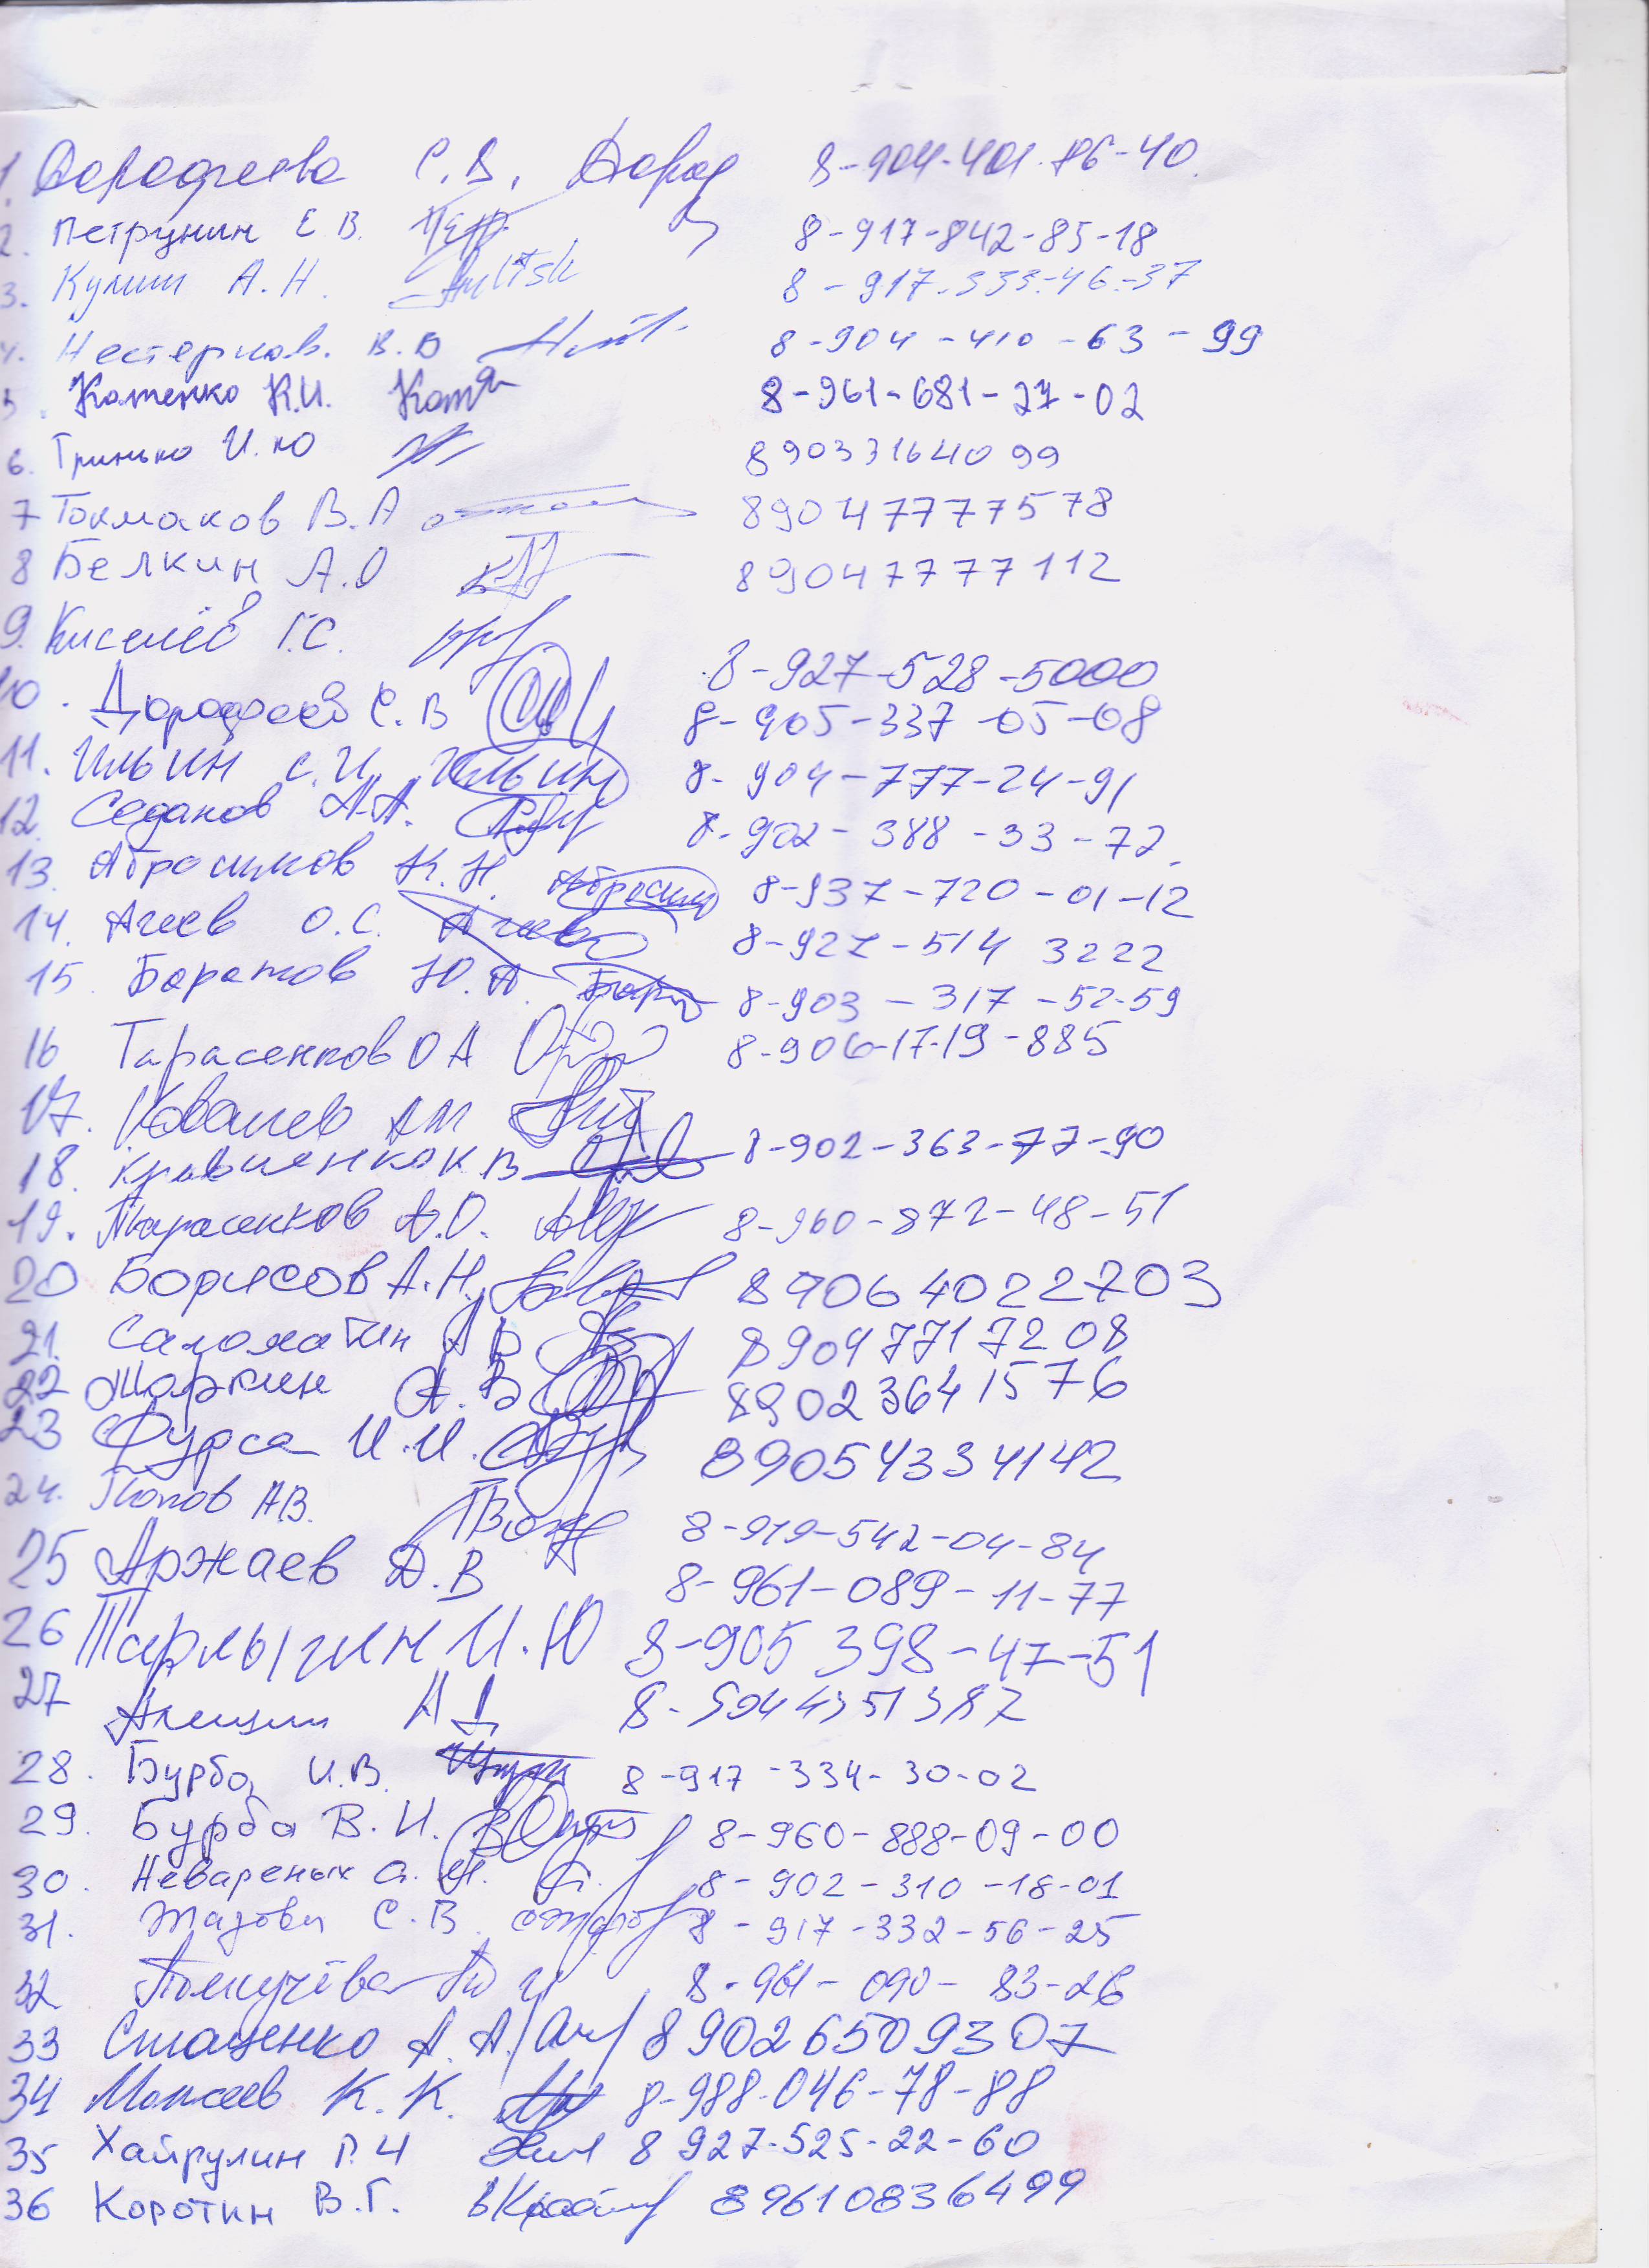 1. Дорофеева С.В. Дороф 8-904-401-86-40.
2. Петрунин Е.В. Петр 8-917-842-85-18
3. Кулиш А.Н. 8-917-333-46-37
4. Нестерков. В.В 8-904-410-63-99
5. Катенко К.И. Катя 8-961-681-27-02
6. Гринько И.Ю 89033164099
7 Токмаков В.А 89047777578
8 Белкин А.О 89047777112
9. Киселёв Г.С. 8-927-528-5000
10. Дорофеев С.В 8-905-337-05-08
11. Ильин С.И. Ильин 8-904-777-24-91
12. Седанов А.А. 8-902-388-33-72.
13. Абросимов К.Н. Абросим 8-937-720-01-12
14. Агеев О.С. Агеев 8-927-514 3222
15. Баратов Ю.А. 8-903-317-52-59
16 Тарасенков О А 8-906-17-19-885
17. Ковалев АМ
18. К В 8-902-363-77-90
19. Тарасенков А.О. 8-960-872-48-51
20 Борисов А.Н. 89064022703
21. Саломатин А В 89047717208
22 Шаркин А.В 89023641576
23 Фурса И.И. 89054334142
24. Попов А.В. 8-919-542-04-84
25 Аржаев Д.В 8-961-089-11-77
26 Тарлыгин И.Ю 8-905 398-47-51
27 А Д 8-9044351387
28. Бурба И.В. 8-917-334-30-02
29. Бурба В.И. 8-960-888-09-00
30. Невареных 8-902-310-18-01
31. С.В. 8-917-332-56-25
32 8-961-090-83-26
33 Стаценко А.А. 89026509307
34 Моисеев К.К. 8-988-046-78-88
35 Хайрулин Р.Ч 8 927-525-22-60
36 Коротин В.Г. 89610836499